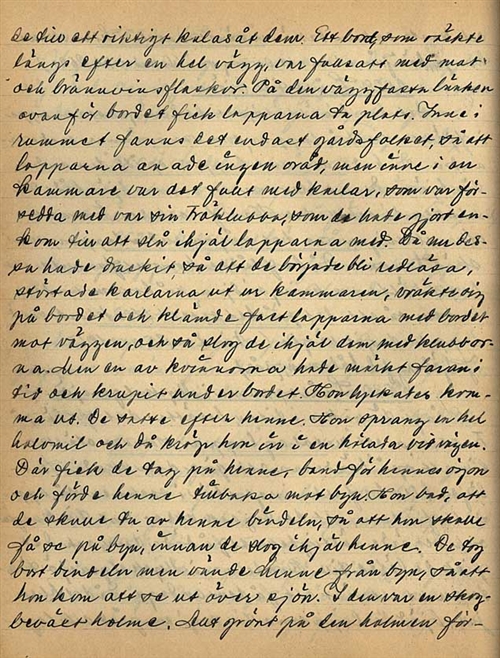 de till ett riktigt kalas åt dem. Ett bord, som räckte
längs efter en hel vägg, var fullsatt med mat-
och brännvinsflaskor. På den väggfasta bänken
ovanför bordet fick lapparna ta plats. Inne i
rummet fanns det endast gårdsfolket, så att
lapparna anade ingen oråd, men inne i en
kammare var det fullt med karlar, som var för-
sedda med var sin träklubba, som de hade gjort en-
kom till att slå ihjäl lapparna med. Då nu des-
sa hade druckit, så att de började bli redlösa,
störtade karlarna ut ur kammaren, vräkte sig
på bordet och klämde fast lapparna med bordet
mot väggen, och så slog de ihjäl dem med klubbor-
na. Men en av kvinnorna hade märkt faran i
tid och krupit under bordet. Hon lyckades kom-
ma ut. De satte efter henne. Hon sprang en hel
halvmil och då kröp hon in i en hölada vid vägen.
Där fick de tag på henne, band för hennes ögon
och förde henne tillbaka mot byn. Hon bad, att
de skulle ta av henne bindeln, så att hon skulle
få se på byn, innan de slog ihjäl henne. De tog
bort bindeln men vände henne från byn, så att
hon kom att se ut över sjön. I den var en skog-
beväxt holme. "Det grönt på den holmen för-